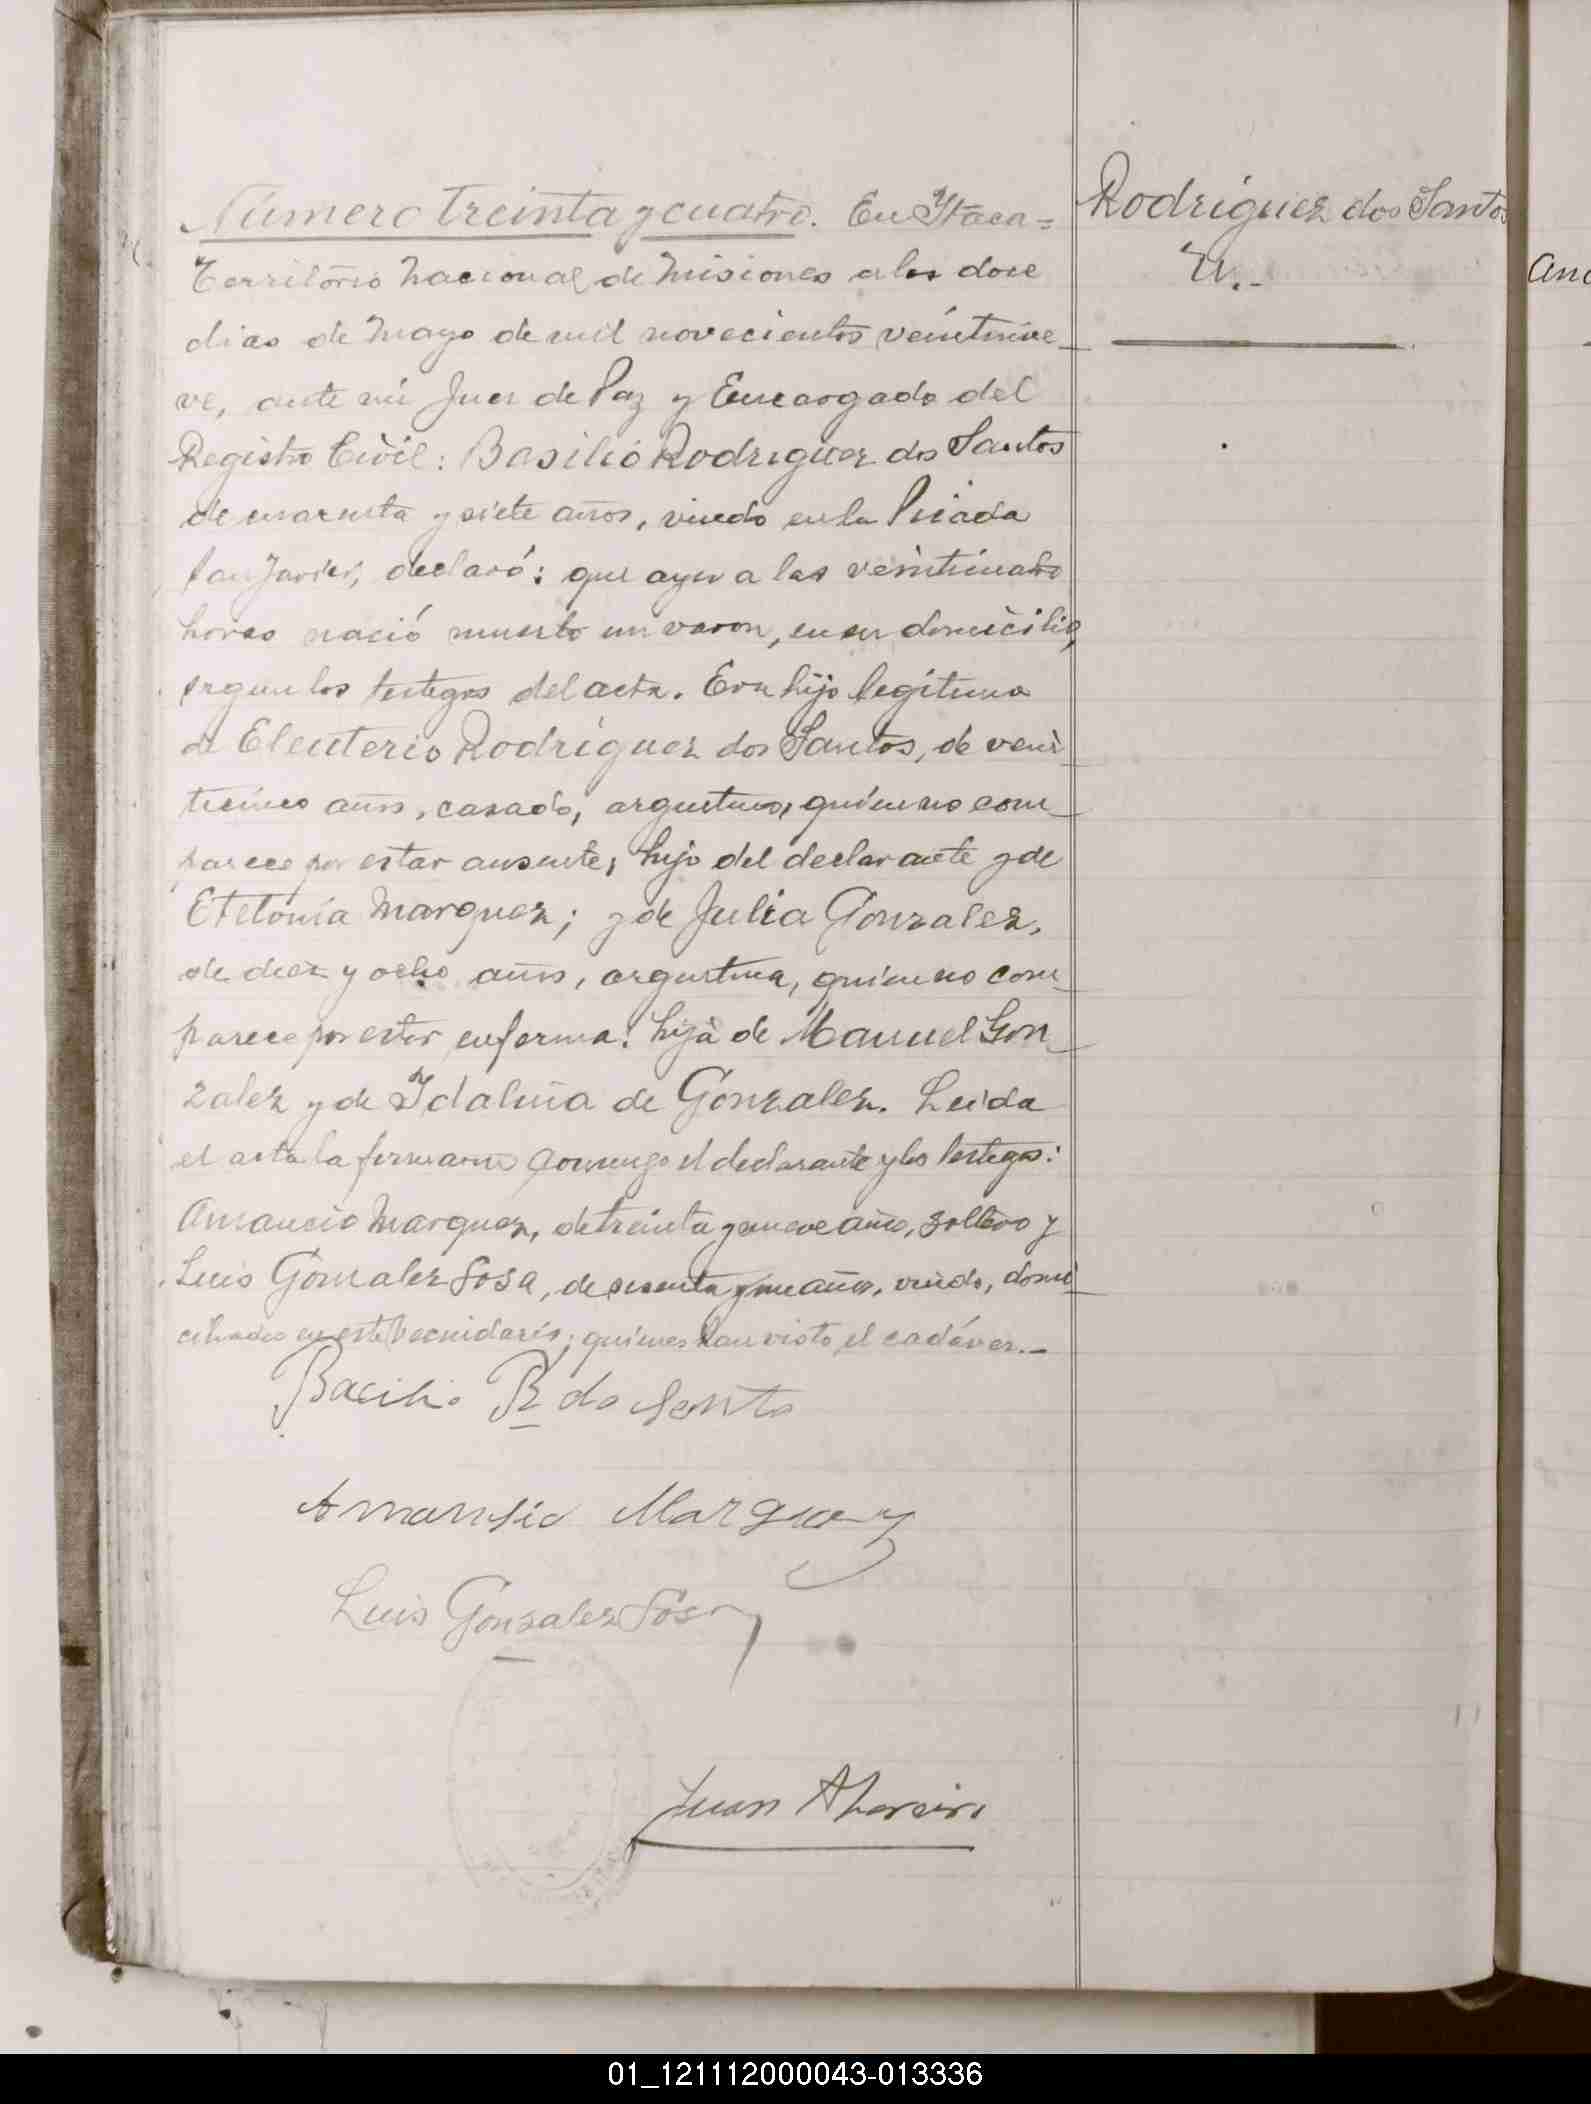 Número treinta y cuatro. En Itaca=
Rodriguez dos Santos
Territorio Nacional de Misiones a los doce
N.-
dias de Mayo de mil novecientos veintinue_
ve, ante mí Juez de Paz y Encargado del
Registro Civil: Basilio Rodriguez dos Santos
de cuarenta y siete años, viudo en la Picada
San Javier, declaró: que ayer a las veinticuatro
horas nació muerto un varon, en su domicilio,
segun los testigos del acta. Era hijo legitimo
de Eleuterio Rodriguez dos Santos, de vein_
ticinco años, casado, argentino, quien no com_
parece por estar ausente, hijo del declarante y de
Etelvina Marquez; y de Julia Gonzalez,
de diez y ocho años, argentina, quien no com_
parece por estar enferma: hija de Manuel Gon_
zalez y de Idalina de Gonzalez. Leida
el acta la firmaron conmigo el declarante y los testigos:
Amancio Marquez, de treinta y nueve años, soltero y
Luis Gonzalez Sosa, de sesenta y un años, viudo, domi_
ciliados en este vecindario; quienes han visto el cadáver.-
Bacilio R do Santo
Amansio Marquez
Luis Gonzalez Sosa
Juan
01_121112000043-013336